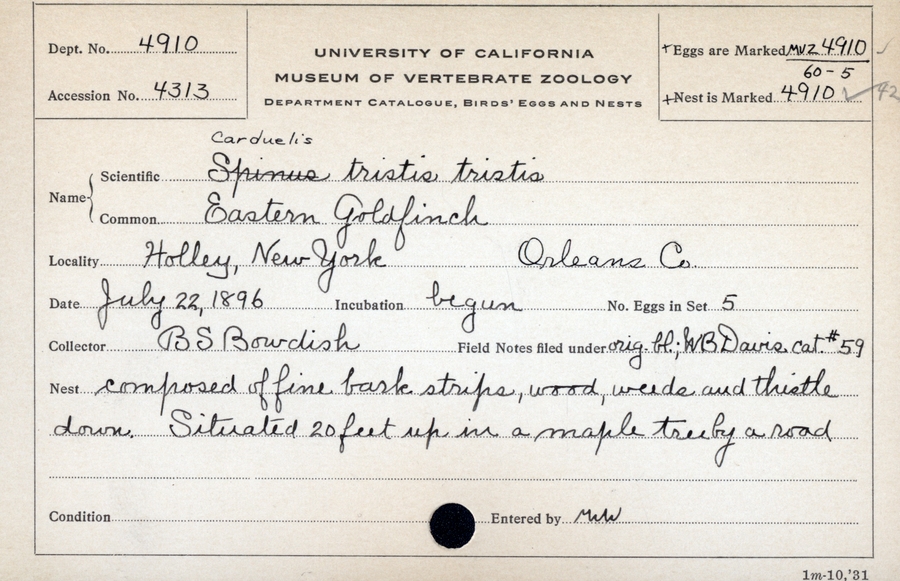 Dept. No. 4910
Accession No. 4313
UNIVERSITY OF CALIFORNIA
MUSEUM OF VERTEBRATE ZOOLOGY
DEPARTMENT CATALOGUE, BIRDS' EGGS AND NESTS
+Eggs are Marked MVZ 4910
60-5
+Nest is Marked 4910 ✓ 42
Carduelis
Name { Scientific Spinus tristis tristis
Common Eastern Goldfinch
Locality Holley, New York Orleans Co.
Date July 22, 1896 Incubation begun No. Eggs in Set 5
Collector B S Bowdish Field Notes filed under orig. bl; WB Davis cat. #59
Nest composed of fine bark strips, wood, weeds and thistle
down. Situated 20 feet up in a maple tree by a road
Condition Entered by
1m-10,'31